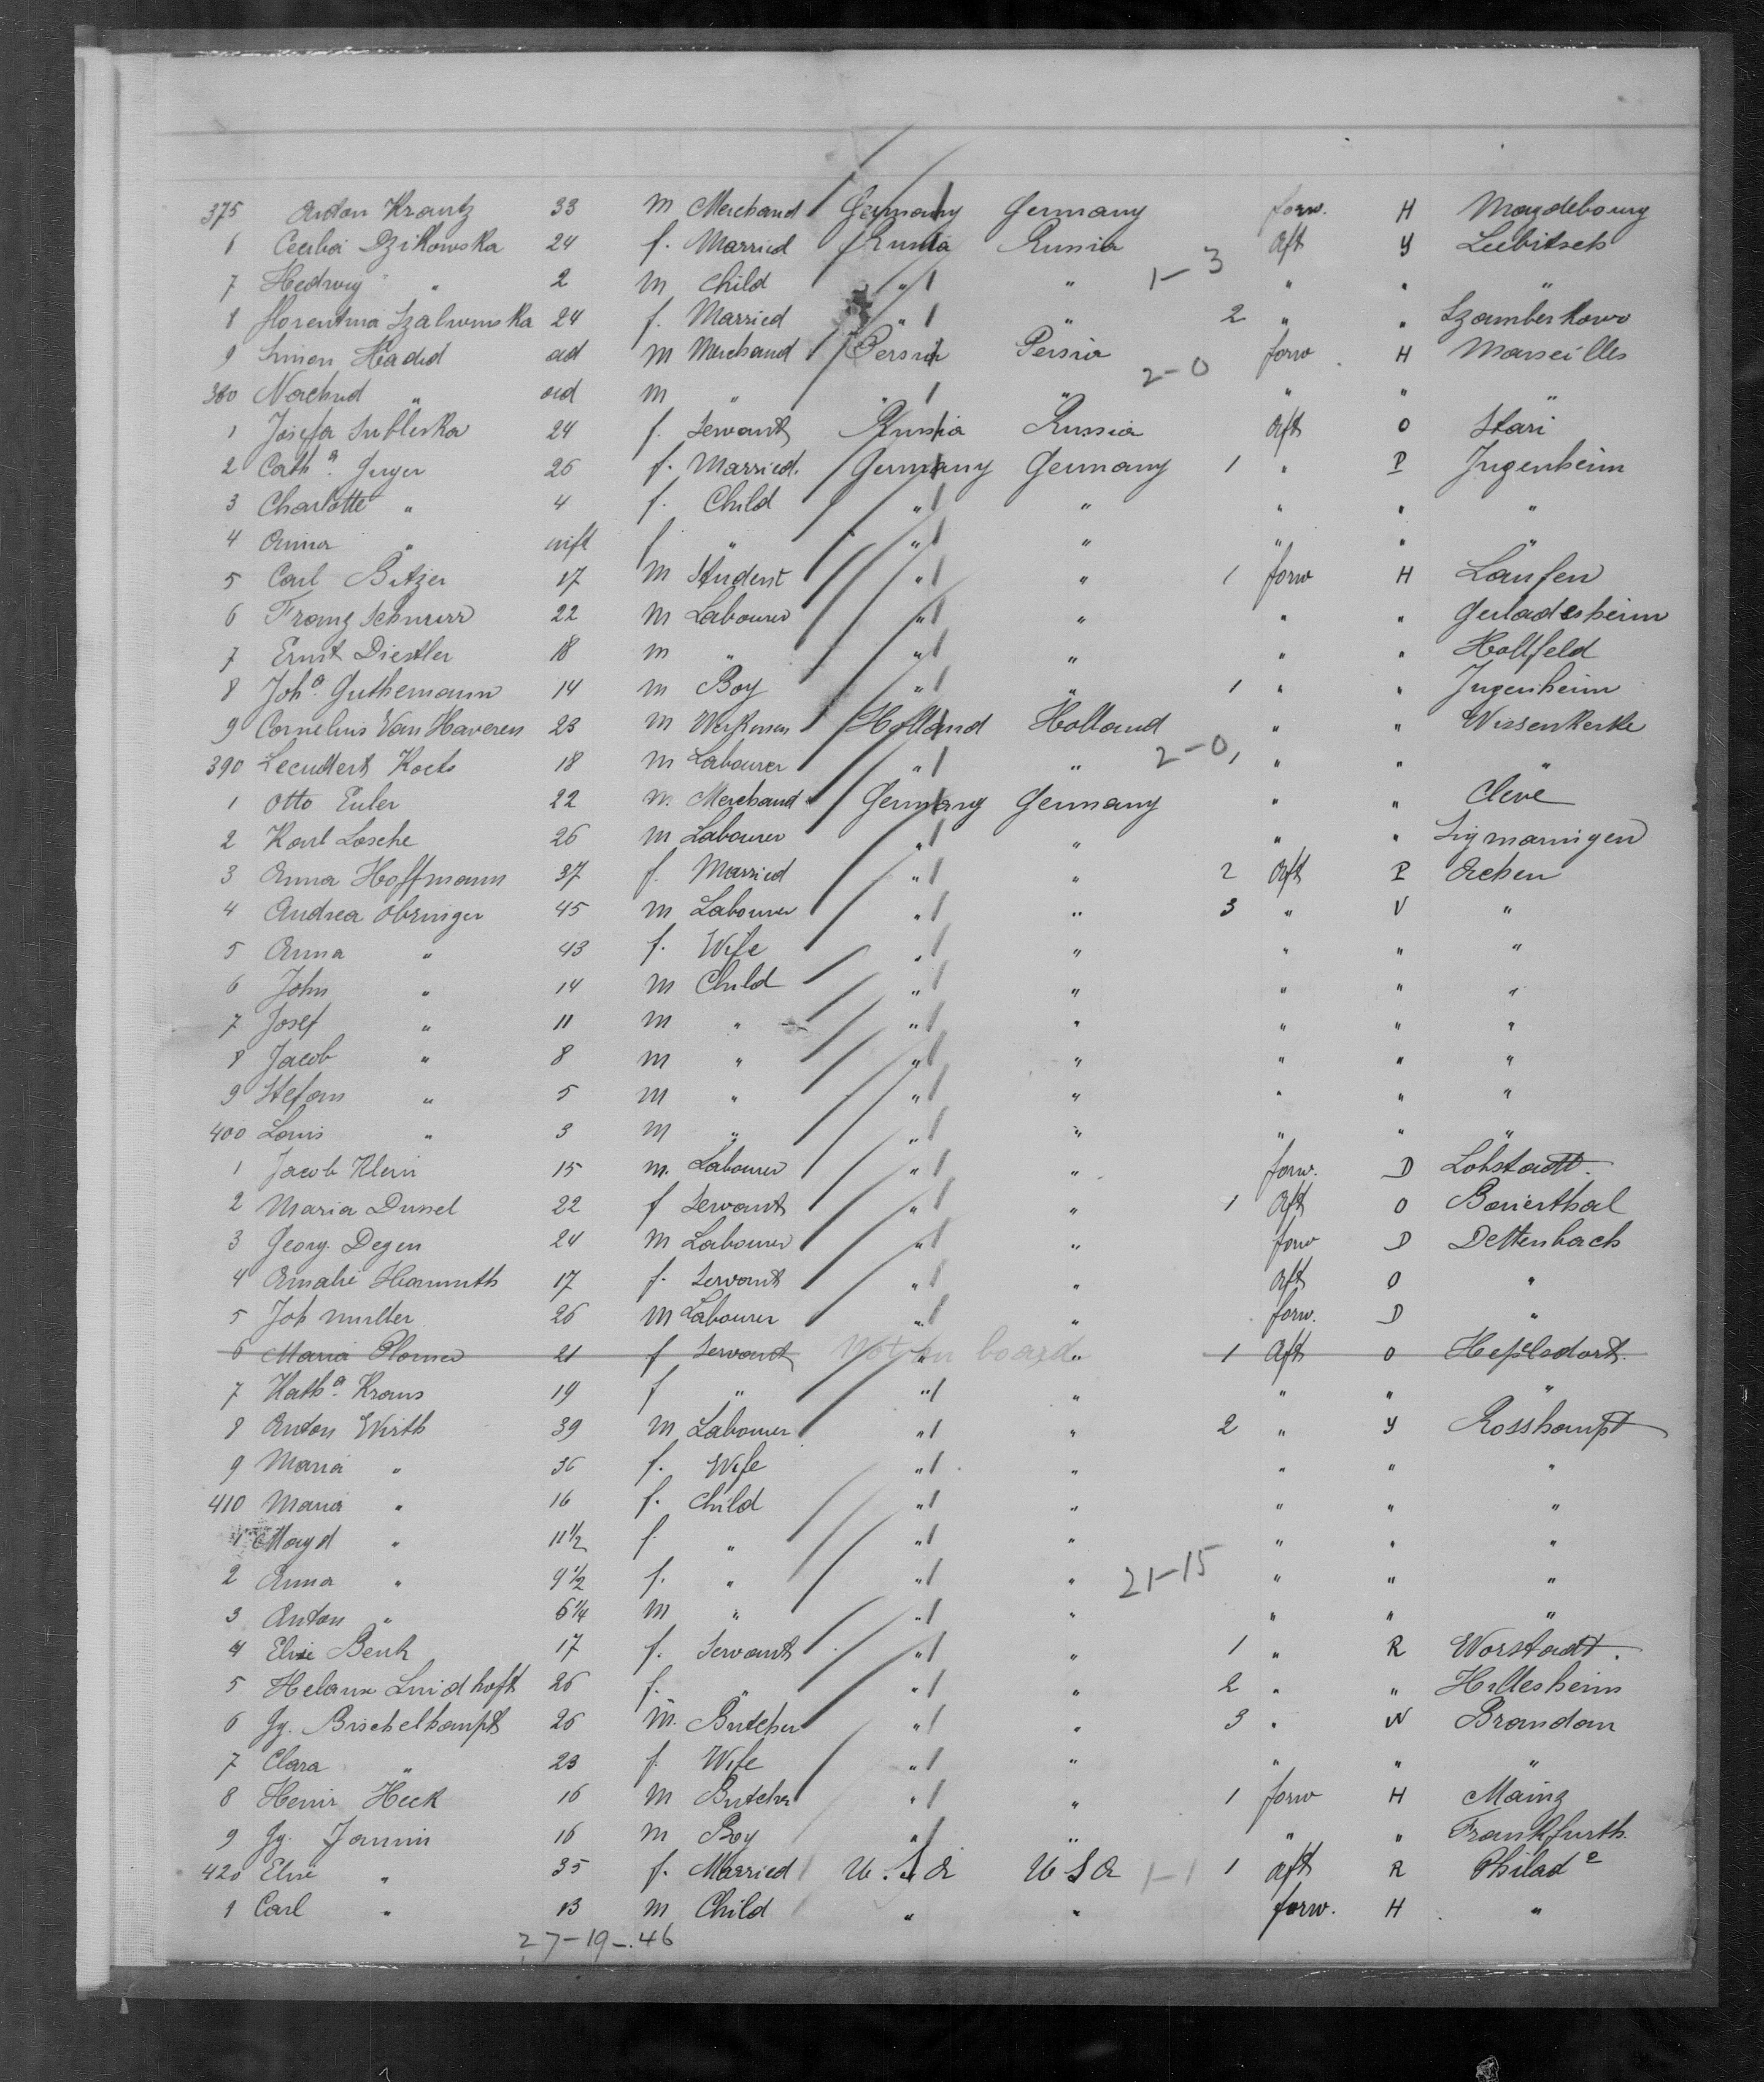 375 Anton Krantz 33 m Merchand Germany Germany forw. H Magdebourg
6 Cecilia Dzikowska 24 f. Married Russia Russia aft Y Lubitsch
7 Hedwig " 2 m Child " " 1-3 " " "
8 Florentina 24 f. Married " " 2 " " Szamberkowo
9 Simon Hadid ad m Merchand Persia Persia forw H Marseilles
380 " ad m " " " 2-0 " " "
1 Josefa Subleska 24 f. Servant Russia Russia aft O Stari
2 Cath a. Geyer 26 f. Married. Germany Germany 1 " P Jugenheim
3 Charlotte " 4 f. Child " " " " "
4 Anna " inft f. " " " " " "
5 Carl Bitzer 17 m Student " " 1 forw H Laufen
6 Franz Schnurr 22 m Labourer " " " "
7 Ernst Diestler 18 m " " " " " Hollfeld
8 Joh a. Guthemann 14 m Boy " " 1 " " Jugenheim
9 Cornelius Van Haveren 23 m Workman Holland Holland " " Wissenkerke
390 Leendert Koets 18 m Labourer " " 2-0 1 " " "
1 Otto Euler 22 m. Merchand Germany Germany " " Cleve
2 Karl Losche 26 m Labourer " " " " Sigmaringen
3 Anna Hoffmann 37 f. Married " " 2 aft P Achen
4 Andrea Obringer 45 m Labourer " " 3 " V "
5 Anna " 43 f. Wife " " " " "
6 John " 14 m Child " " " " "
7 Josef " 11 m " " " " " "
8 Jacob " 8 m " " " " " "
9 Stefan " 5 m " " " " " "
400 Louis " 3 m " " " " " "
1 Jacob Klein 15 m. Labourer " " forw. D Lobstadt.
2 Maria Dussel 22 f Servant " " 1 aft O Baierthal
3 Georg. Degen 24 m Labourer " " forw D Dettenbach
4 Amalie 17 f. Servant " " aft O "
5 Joh muller 26 m Labourer " " forw. D "
6 Maria Plomer 21 f Servant not on board " " 1 aft O
7 Kath a. Kraus 19 f " " " " " "
8 Anton Wirth 39 m Labourer " " 2 " Y Rosshaupt
9 Maria " 36 f. Wife " " " " "
410 Maria " 16 f. Child " " " " "
1 Magd " 11 1/2 f. " " " " " "
2 Anna " 9 1/2 f. " " " 21-15 " " "
3 Anton " 6 1/4 m " " " " " "
4 Elise Benk 17 f. Servant " " 1 " R Worstadt.
5 Helaine 26 f. " " " 2 " " Hillesheim
6 Gg. Bischelhaupt 26 m. Butcher " " 3 " W Brandau
7 Clara " 23 f. Wife " " " " "
8 Heinr Heck 16 m Butcher " " 1 forw H Mainz
9 Gg. Jannin 16 m Boy " " " " Frankfurth.
420 Elise " 35 f. Married U.S.a U S a 1-1 1 aft R Philad e
1 Carl " 13 m Child " " forw. H "
27-19-.46